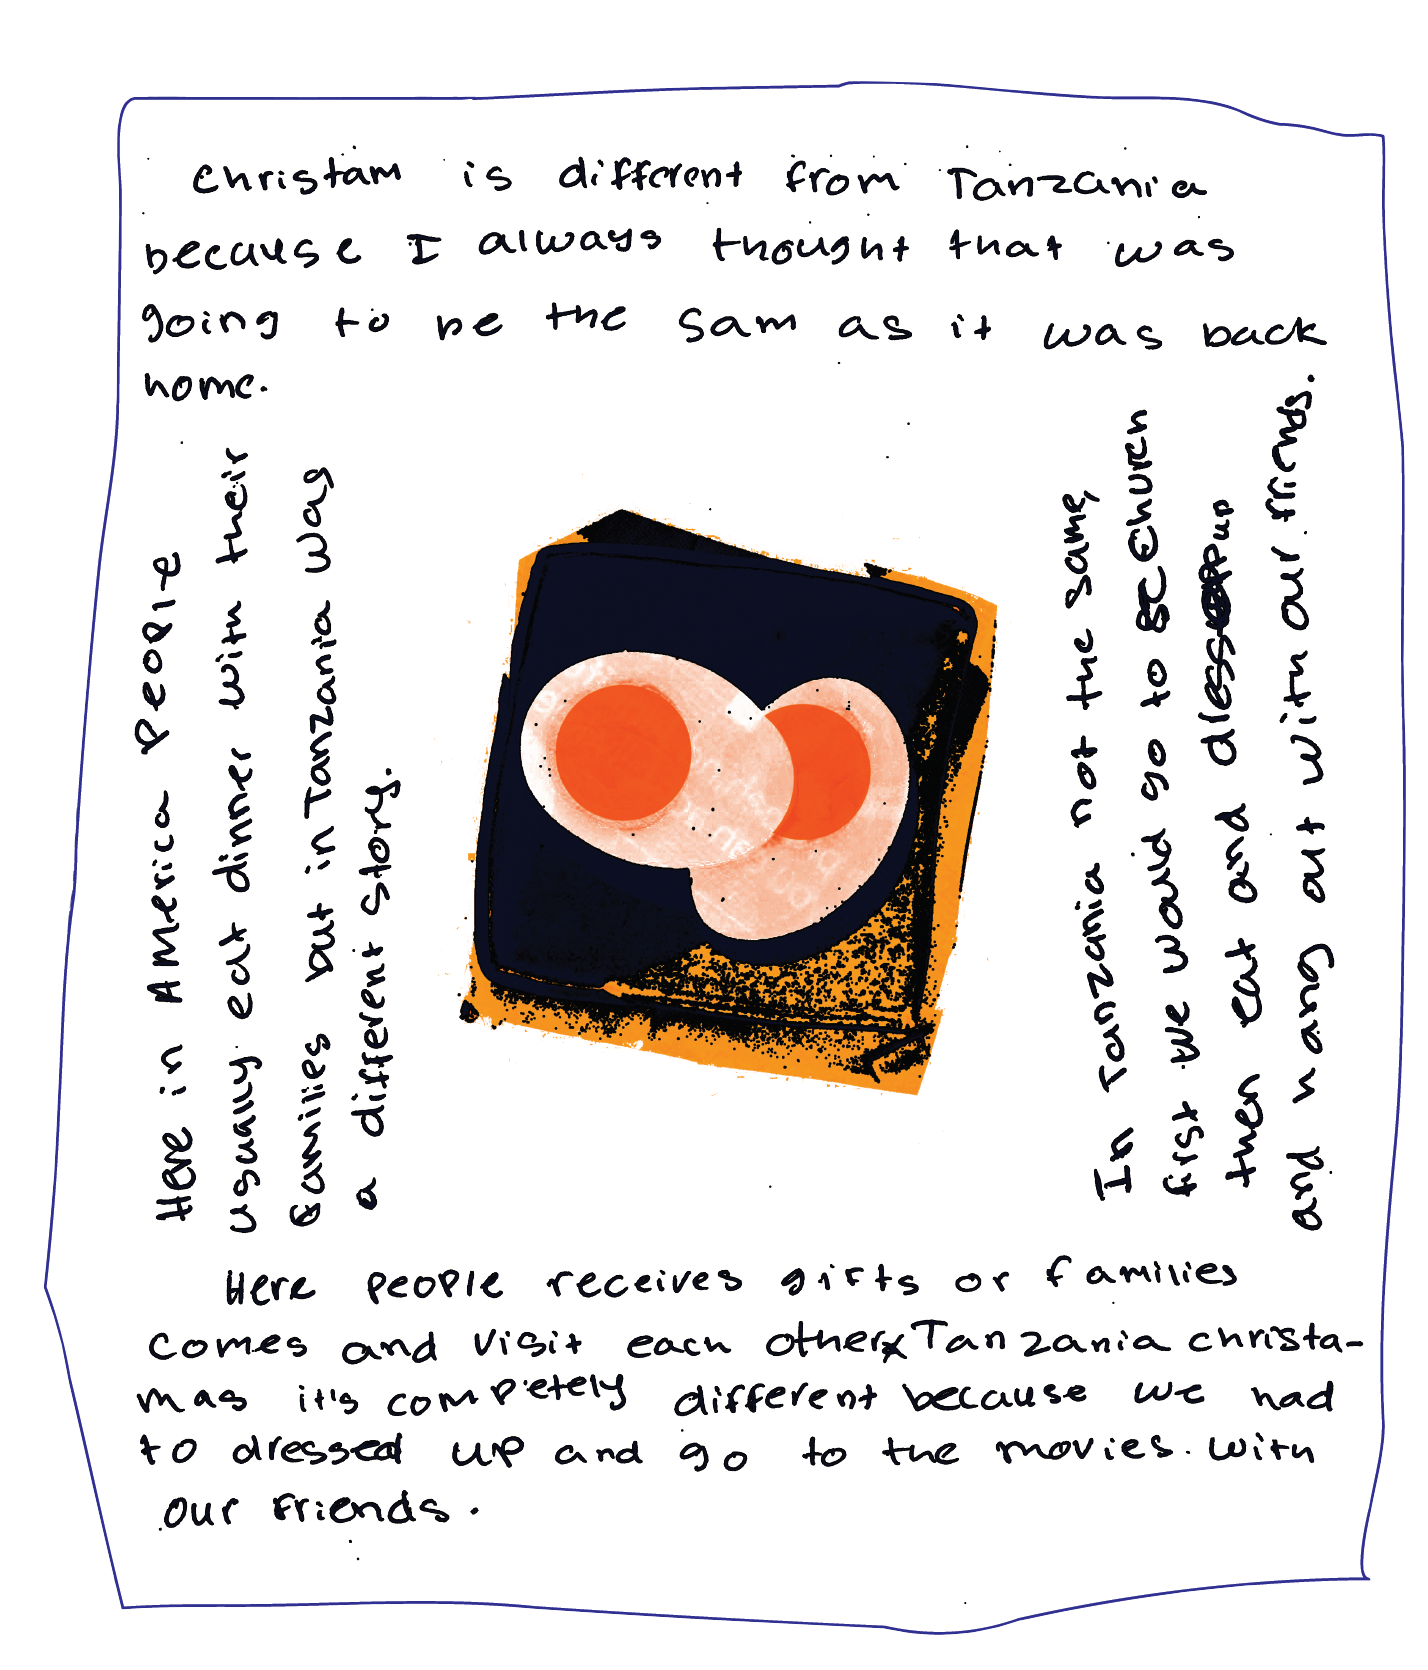 Christam is different from Tanzania
because I always thought that was
going to be the sam as it was back
home.
Here in America People
usually eat dinner with their
families but in Tanzania was
a different story.
In Tanzania not the same,
first we would go to church
then eat and dress up
and hang out with our friends.
Here people receives gifts or families
comes and visit each other Tanzania christa-
mas it's completely different because we had
to dressed up and go to the movies. with
our friends.